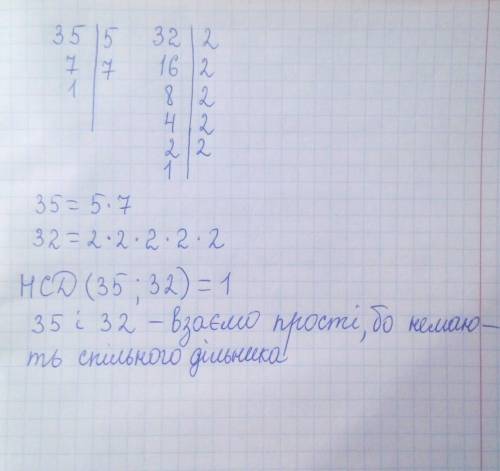 35 | 5 32 | 2
7 | 7 16 | 2
1 | 8 | 2
4 | 2
2 | 2
1 |
35 = 5 · 7
32 = 2 · 2 · 2 · 2 · 2
НСД (35 ; 32) = 1
35 і 32 – взаємо прості, бо немаю-
ть спільного дільника